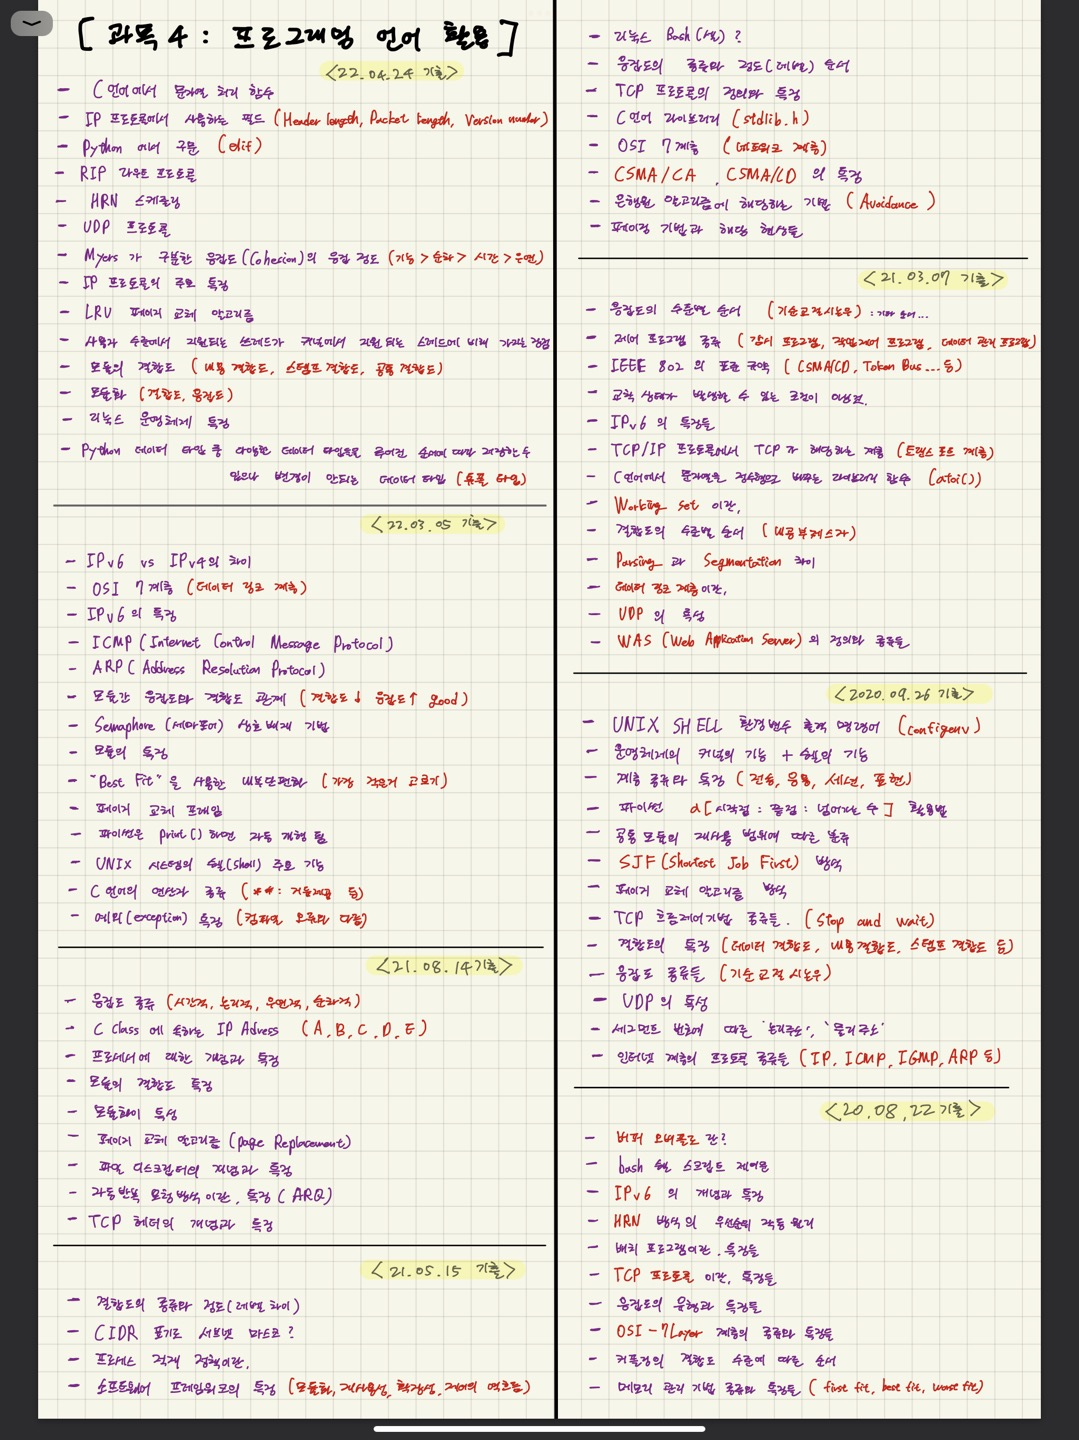 [ 과목 4 : 프로그래밍 언어 활용 ]
<22.04.24 기출>
- C언어에서 문자열 처리 함수
- IP 프로토콜에서 사용하는 필드 (Header length, Packet length, Version number)
- Python 에서 구문 (elif)
- RIP 라우트 프로토콜
- HRN 스케줄링
- UDP 프로토콜
- Myers가 구분한 응집도(Cohesion)의 응집 정도 (기능 > 순차 > 시간 > 우연)
- IP 프로토콜의 주요 특징
- LRU 페이지 교체 알고리즘
- 사용자 수준에서 지원되는 쓰레드가 커널에서 지원되는 스레드에 비해 가지는 장점
- 모듈의 결합도 (내용 결합도, 스탬프 결합도, 공통 결합도)
- 모듈화 (결합도, 응집도)
- 리눅스 운영체제 특징
- Python 데이터 타입 중 다양한 데이터 타입을 주어진 순서에 따라 저장할 수
있으나 변경이 안되는 데이터 타입 (튜플 타입)
<22.03.05 기출>
- IPv6 vs IPv4의 차이
- OSI 7계층 (데이터 링크 계층)
- IPv6의 특징
- ICMP (Internet Control Message Protocol)
- ARP ( Address Resolution Protocol)
- 모듈간 응집도와 결합도 관계 (결합도↓ 응집도↑ good)
- Semaphore (세마포어) 상호배제 기법
- 모듈의 특징
- "Best Fit"을 사용한 내부단편화 (가장 작은거 고르기)
- 페이지 교체 프레임
- 파이썬은 print() 하면 자동 개행 됨
- UNIX 시스템의 쉘(shell) 주요 기능
- C언어의 연산자 종류 (** : 거듭제곱 등)
- 예외(exception) 특징 (컴파일 오류와 다름)
<21.08.14 기출>
- 응집도 종류 (시간적, 논리적, 우연적, 순차적)
- C class 에 속하는 IP Adress (A, B, C, D, E)
- 프로세서에 대한 개념과 특징
- 모듈의 결합도 특징
- 모듈화의 특성
- 페이지 교체 알고리즘 (page Replacement)
- 파일 디스크립터의 개념과 특징
- 자동반복 요청방식이란, 특징 (ARQ)
- TCP 헤더의 개념과 특징
<21.05.15 기출>
- 결합도의 종류와 정도(레벨 차이)
- CIDR 표기로 서브넷 마스크?
- 프로세스 적재 정책이란,
- 소프트웨어 프레임워크의 특징 (모듈화, 재사용성, 확장성, 제어의 역흐름)
- 리눅스 Bash (쉘) ?
- 응집도의 종류와 정도(레벨) 순서
- TCP 프로토콜의 정의와 특징
- C언어 라이브러리 (stdlib.h)
- OSI 7계층 (네트워크 계층)
- CSMA/CA , CSMA/CD 의 특징
- 은행원 알고리즘에 해당하는 기법 ( Avoidance )
- 페이징 기법과 해당 현상들
<21.03.07 기출>
- 응집도의 수준별 순서 (기순교절시논우) : 기차 놓여...
- 제어 프로그램 종류 (감시 프로그램, 작업제어 프로그램, 데이터 관리 프로그램)
- IEEE 802 의 표준 규약 ( CSMA/CD, Token Bus ... 등)
- 교착 상태가 발생할 수 있는 조건이 아닌것.
- IPv6 의 특징들
- TCP/IP 프로토콜에서 TCP가 해당하는 계층 (트랜스포트 계층)
- C언어에서 문자열을 정수형으로 바꾸는 라이브러리 함수 (atoi())
- Working set 이란,
- 결합도의 수준별 순서 (내공부제스자)
- Parsing 과 Segmentation 차이
- 데이터 링크 계층이란,
- UDP 의 특성
- WAS (Web Application Server) 의 정의와 종류들
<2020.09.26 기출>
- UNIX SHELL 환경변수 출력 명령어 (configenv)
- 운영체제의 커널의 기능 + 쉘의 기능
- 계층 종류와 특징 (전송, 응용, 세션, 표현)
- 파이썬 a[시작점 : 끝점 : 넘어가는 수] 활용법
- 공통 모듈의 재사용 범위에 따른 분류
- SJF (Shortest Job First) 방식
- 페이지 교체 알고리즘 방식
- TCP 흐름제어기법 종류들. (Stop and wait)
- 결합도의 특징 (데이터 결합도, 내용결합도, 스탬프 결합도 등)
- 응집도 종류들 (기순교절시논우)
- UDP의 특성
- 세그먼트 번호에 따른 '논리주소', '물리주소'
- 인터넷 계층의 프로토콜 종류들 (IP, ICMP, IGMP, ARP 등)
<20.08.22 기출>
- 버퍼 오버플로 란?
- bash 쉘 스크립트 제어문
- IPv6 의 개념과 특징
- HRN 방식의 우선순위 작동 원리
- 배치 프로그램이란. 특징들
- TCP 프로토콜 이란, 특징들
- 응집도의 유형과 특징들
- OSI - 7Layer 계층의 종류와 특징들
- 커플링의 결합도 수준에 따른 순서
- 메모리 관리 기법 종류와 특징들 ( first fit, best fit, worst fit)